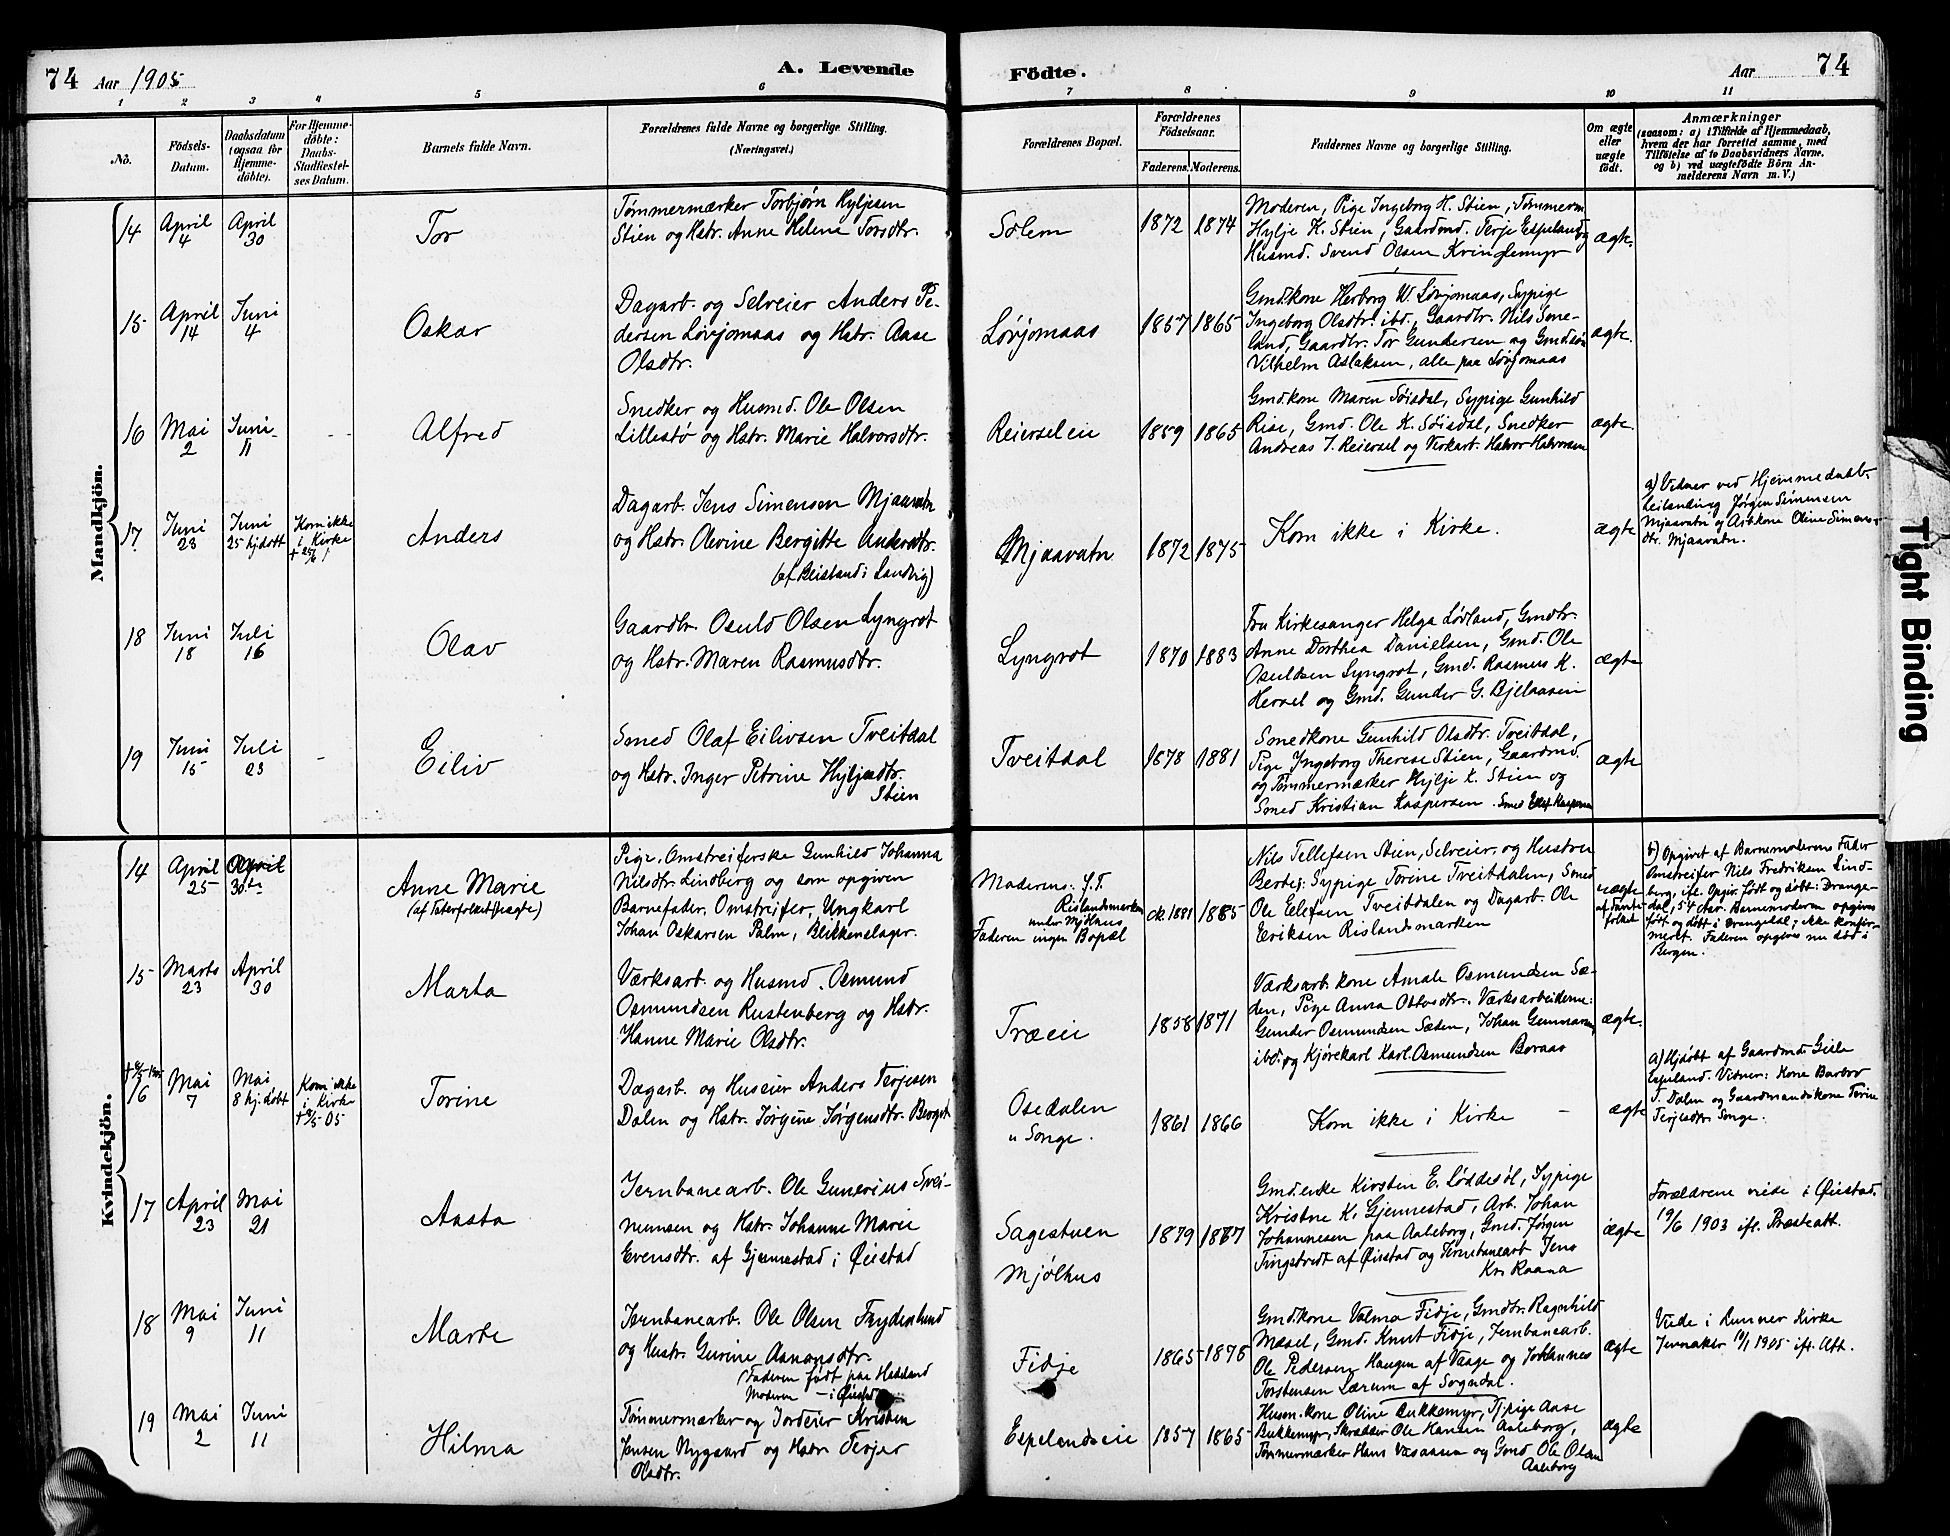 74 Aar 1905 A. Levende
Födte. Aar 74
1 2 3 4 5 6
7 8 9 10 11
No.
Födsels-
Datum.
Daabsdatum
(ogsaa for
Hjemme-
döbte).
For Hjemme-
döbte:
Daabs-
Stadfæstel-
ses Datum.
Barnets fulde Navn.
Forældrenes fulde Navne og borgerlige Stilling.
(Næringsvei.)
Forældrenes Bopæl.
Forældrenes
Födselsaar.
Faderens. Moderens.
Faddernes Navne og borgerlige Stilling.
Om ægte
eller
uægte
födt.
Anmærkninger
(saasom: a) i Tilfælde af Hjemmedaab,
hvem der har forrettet samme, med
Tilföielse af to Daabsvidners Navne,
og b) ved uægtefödte Börn An-
melderens Navn m. V.)
Mandkjön.
14
April
4
April
30
Tor
Tømmermærker Torbjørn Hyljesen
Stien og Hstr. Anne Helene Torsdtr.
Solem
1872 1874
Moderen, Pige Ingeborg H. Stien, Tømmerm
Hylje K. Stien, Gaardmd. Terje Espeland og
Husmd. Svend Olsen Kringlemyr
ægte.
15
April
14
Juni
4
Oskar
Dagarb. og Selveier Anders Pe-
dersen Løvjomaas og Hstr. Aase
Olsdtr.
Løvjomaas
1857 1865
Gmd.kone Herborg W. Løvjomaas, Sypige
Ingeborg Olsdtr. ibd., Gaardbr. Nils Sme-
land, Gaardbr. Tor Gundersen og Gmdsøn
Vilhelm Aslaksen, alle paa Løvjomaas
ægte.
16
Mai
2
Juni
11
- -
Alfred
Snedker og Husmd. Ole Olsen
Lillestø og Hstr. Marie Halvorsdtr.
Reierseleie
1859 1865
Gmd.kone Maren Søisdal, Sypige Gunhild
Rise, Gmd. Ole K. Søisdal, Snedker
Andreas J. Reiersel og Verkarb. Halvor Halvorsen
ægte.
17
Juni
23
Juni
25 hj.døbt
Kom ikke
i Kirke
† 25/6 !
Anders
Dagarb. Jens Simensen Mjaavatn
og Hstr. Olevine Bergitte Andersdtr.
(af Reistand i Landvig)
Mjaavatn
1872 1875
Kom ikke i Kirke.
ægte
a) Vidner ved Hjemmedaab:
Leilænding Jørgen Simensen
Mjaavatn og Arb.kone Oline Simens-
dtr. Mjaavatn.
18
Juni
18
Juli
16
Olav
Gaardbr. Osuld Olsen Lyngrot
og Hstr. Maren Rasmusdtr.
Lyngrot
1870 1883
Fru Kirkesanger Helga Lødland, Gmdtr.
Anne Dorthea Danielsen, Gmd. Ole
Osuldsen Lyngrot, Gmd. Rasmus K.
Hersel og Gmd. Gunder G. Bjelaasen
ægte
19
Juni
15
Juli
23
-
Eiliv
Smed Olaf Eilivsen Tveitdal
og Hstr. Inger Petrine Hyljesdtr.
Stien
Tveitdal
1878 1881
Smedkone Gunhild Olsdtr. Tveitdal,
Pige Ingeborg Therese Stien, Gaardmd.
og Tømmermærker Hylje K. Stien og
Smed Kristian Kaspersen.
ægte
Kvindekjön.
14
April
25
April
30te
Anne Marie
(af Taterfolket (uægte)
Pige, Omstreiferske Gunhild Johanna
Nilsdtr. Lindberg og som opgiven
Barnefader, Omstreifer, Ungkarl
Johan Oskarsen Palm, Blikkenslager.
Moderens: f.T.
Rislandsmarken
under Mjölhus
Faderen ingen Bopæl
ck 1881 1885
Nils Tellefsen Stien, Selveier, og Hustru
Berte; Sypige Torine Tveitdalen, Smed
Ole Ellefsen Tveitdalen og Dagarb. Ole
Eriksen Rislandsmarken
uægte
folket
b) Opgivet af Barnemoderens Fader
Omstreifer Nils Fredriksen Lind-
berg, ifl. Opgiv. født og døbt: Drange-
dal, 54 Aar. Barnemoderen opgives
født og døbt i Drangedal, ikke konfir-
meret. Faderen opgives nu død i
Bergen.
15
Marts
23
April
30
Marta
Værksarb. og Husmd. Osmund
Osmundsen Rustenberg og Hstr.
Hanne Marie Olsdtr.
Træeie
1858 1871
Værksarb. kone Amale Osmundsen Sæ-
den, Pige Anna Ottosdtr. Værksarbeiderne:
Gunder Osmundsen Sæden, Johan Gunnarsen
ibd. og Kjørekarl Karl Osmundsen Boraas
ægte.
16
Mai
7
Mai
8 hj.døbt
Kom ikke
i Kirke
Torine
Dagarb. og Huseier Anders Terjesen
Dalen og Hstr. Jørgine Jørgensdtr. Berget
Osedalen
u Songe.
1861 1866
Kom ikke i Kirke -
ægte
a) Hjdøbt af Gaardmd. Gisle
Espeland. Vidner: Kone Barbro
T. Dalen og Gaardmandskone Torine
Terjesdtr. Songe.
17
April
23
Mai
21
Aasta
Jernbanearb. Ole Gunerius Svei-
nunsen og Hstr. Johanne Marie
Evensdtr. af Gjennestad i Øiestad
Sagestuen
Mjølhus
1879 1877
Gmd.enke Kirsten E. Løddesøl, Sypige
Kristne K. Gjennestad, Arb. Johan
Johannesen paa Aaleborg, Gmd. Jørgen
Tingstveit af Øiestad og Jernbanearb Jens
Kr. Raana
ægte
Forældrene viede i Øiestad
19/6 1903 ifl. Præsteatt.
18
Mai
9
Juni
11
Marte
Jernbanearb. Ole Olsen Frydenlund
og Hustr. Gurine Aanonsdtr.
Faderen født paa Hadeland
Moderen - i Øiestad
Fidje
1865 1878
Gmd.kone Valma Fidje, Gmdtr. Ragnhild
Mæsel, Gmd. Knut Fidje, Jernbanearb.
Ole Pedersen Haugen af Vaage og Johannes
Torstensen Lærum af Sogndal.
ægte
Viede i Lunner Kirke
Jevnaker 19/1 1905 ifl. Att.
19
Mai
2
Juni
11
Hilma
Tømmermærker og Jordeier Kristen
Jensen Nygaard og Hstr. Terjar
Olsdtr.
Espelandseie
1857 1865
Husm.kone Oline Bukkemyr, Pige Aase
Bukkemyr, Skrædder Ole Hansen Aaleborg,
Tømmermærker Hans Vasaasen og Gmd Ole Olsen
Aaleborg
ægte
Tight Binding